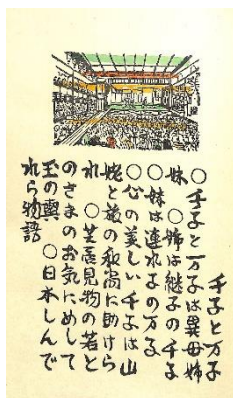 千子と万子
○千子と万子は異母姉
妹 ○姉は継子の千子
○妹は連れ子の万子
○心の美しい千子は山
姥と旅の和尚に助けら
れ ○芝居見物の若と
のさまのお気にめして
玉の輿 ○日本しんで
れら物語